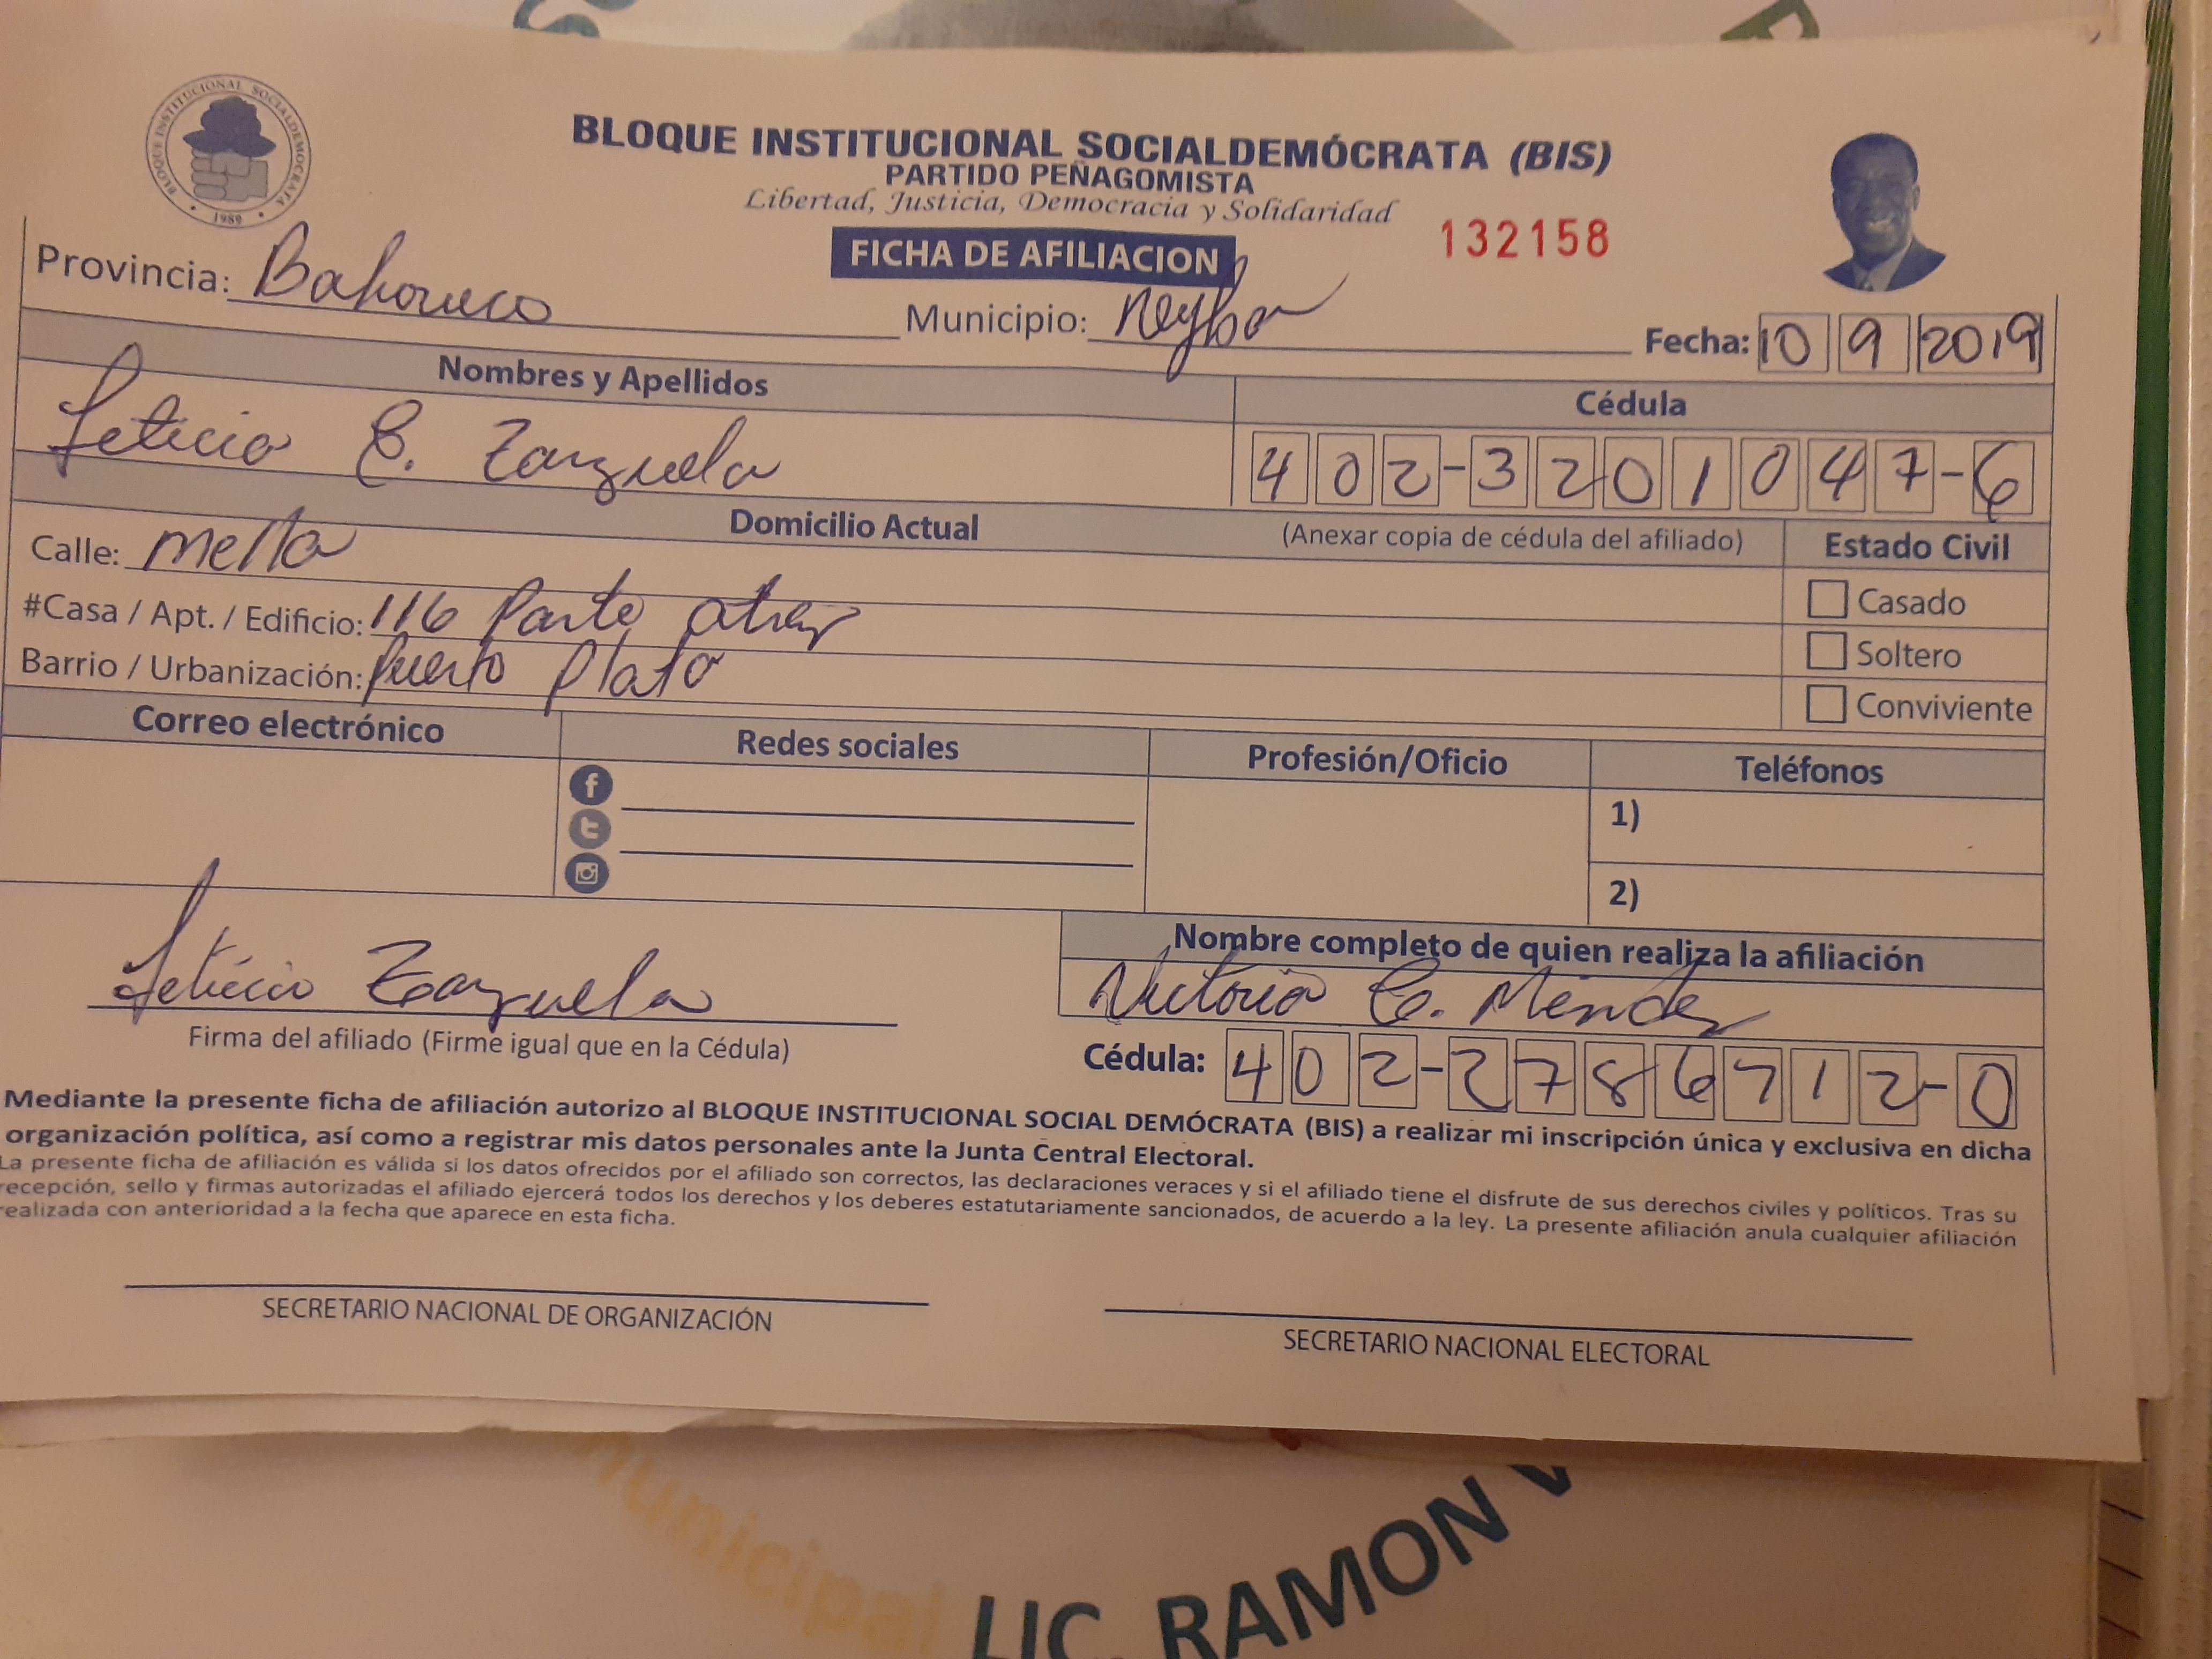 BLOQUE INSTITUCIONAL SOCIALDEMOCRATA
1989
BLOQUE INSTITUCIONAL SOCIALDEMÓCRATA (BIS)
PARTIDO PEÑAGOMISTA
Libertad, Justicia, Democracia y Solidaridad
132158
FICHA DE AFILIACION
Provincia: Bahoruco Municipio: Neyba Fecha: 10 9 2019
Nombres y Apellidos Cédula
Leticia E. Zarzuela 402-3201047-6
Domicilio Actual (Anexar copia de cédula del afiliado) Estado Civil
Calle: mella
Casado
#Casa / Apt. / Edificio: 116 Parte atras
Soltero
Barrio / Urbanización: puerto plata
Conviviente
Correo electrónico Redes sociales Profesión/Oficio Teléfonos
1)
2)
Leticia Zarzuela
Firma del afiliado (Firme igual que en la Cédula)
Nombre completo de quien realiza la afiliación
Victoria E. Méndez
Cédula: 402-2786712-0
Mediante la presente ficha de afiliación autorizo al BLOQUE INSTITUCIONAL SOCIAL DEMÓCRATA (BIS) a realizar mi inscripción única y exclusiva en dicha
organización política, así como a registrar mis datos personales ante la Junta Central Electoral.
La presente ficha de afiliación es válida si los datos ofrecidos por el afiliado son correctos, las declaraciones veraces y si el afiliado tiene el disfrute de sus derechos civiles y políticos. Tras su
recepción, sello y firmas autorizadas el afiliado ejercerá todos los derechos y los deberes estatutariamente sancionados, de acuerdo a la ley. La presente afiliación anula cualquier afiliación
realizada con anterioridad a la fecha que aparece en esta ficha.
SECRETARIO NACIONAL DE ORGANIZACIÓN
SECRETARIO NACIONAL ELECTORAL
municipal
LIC. RAMON